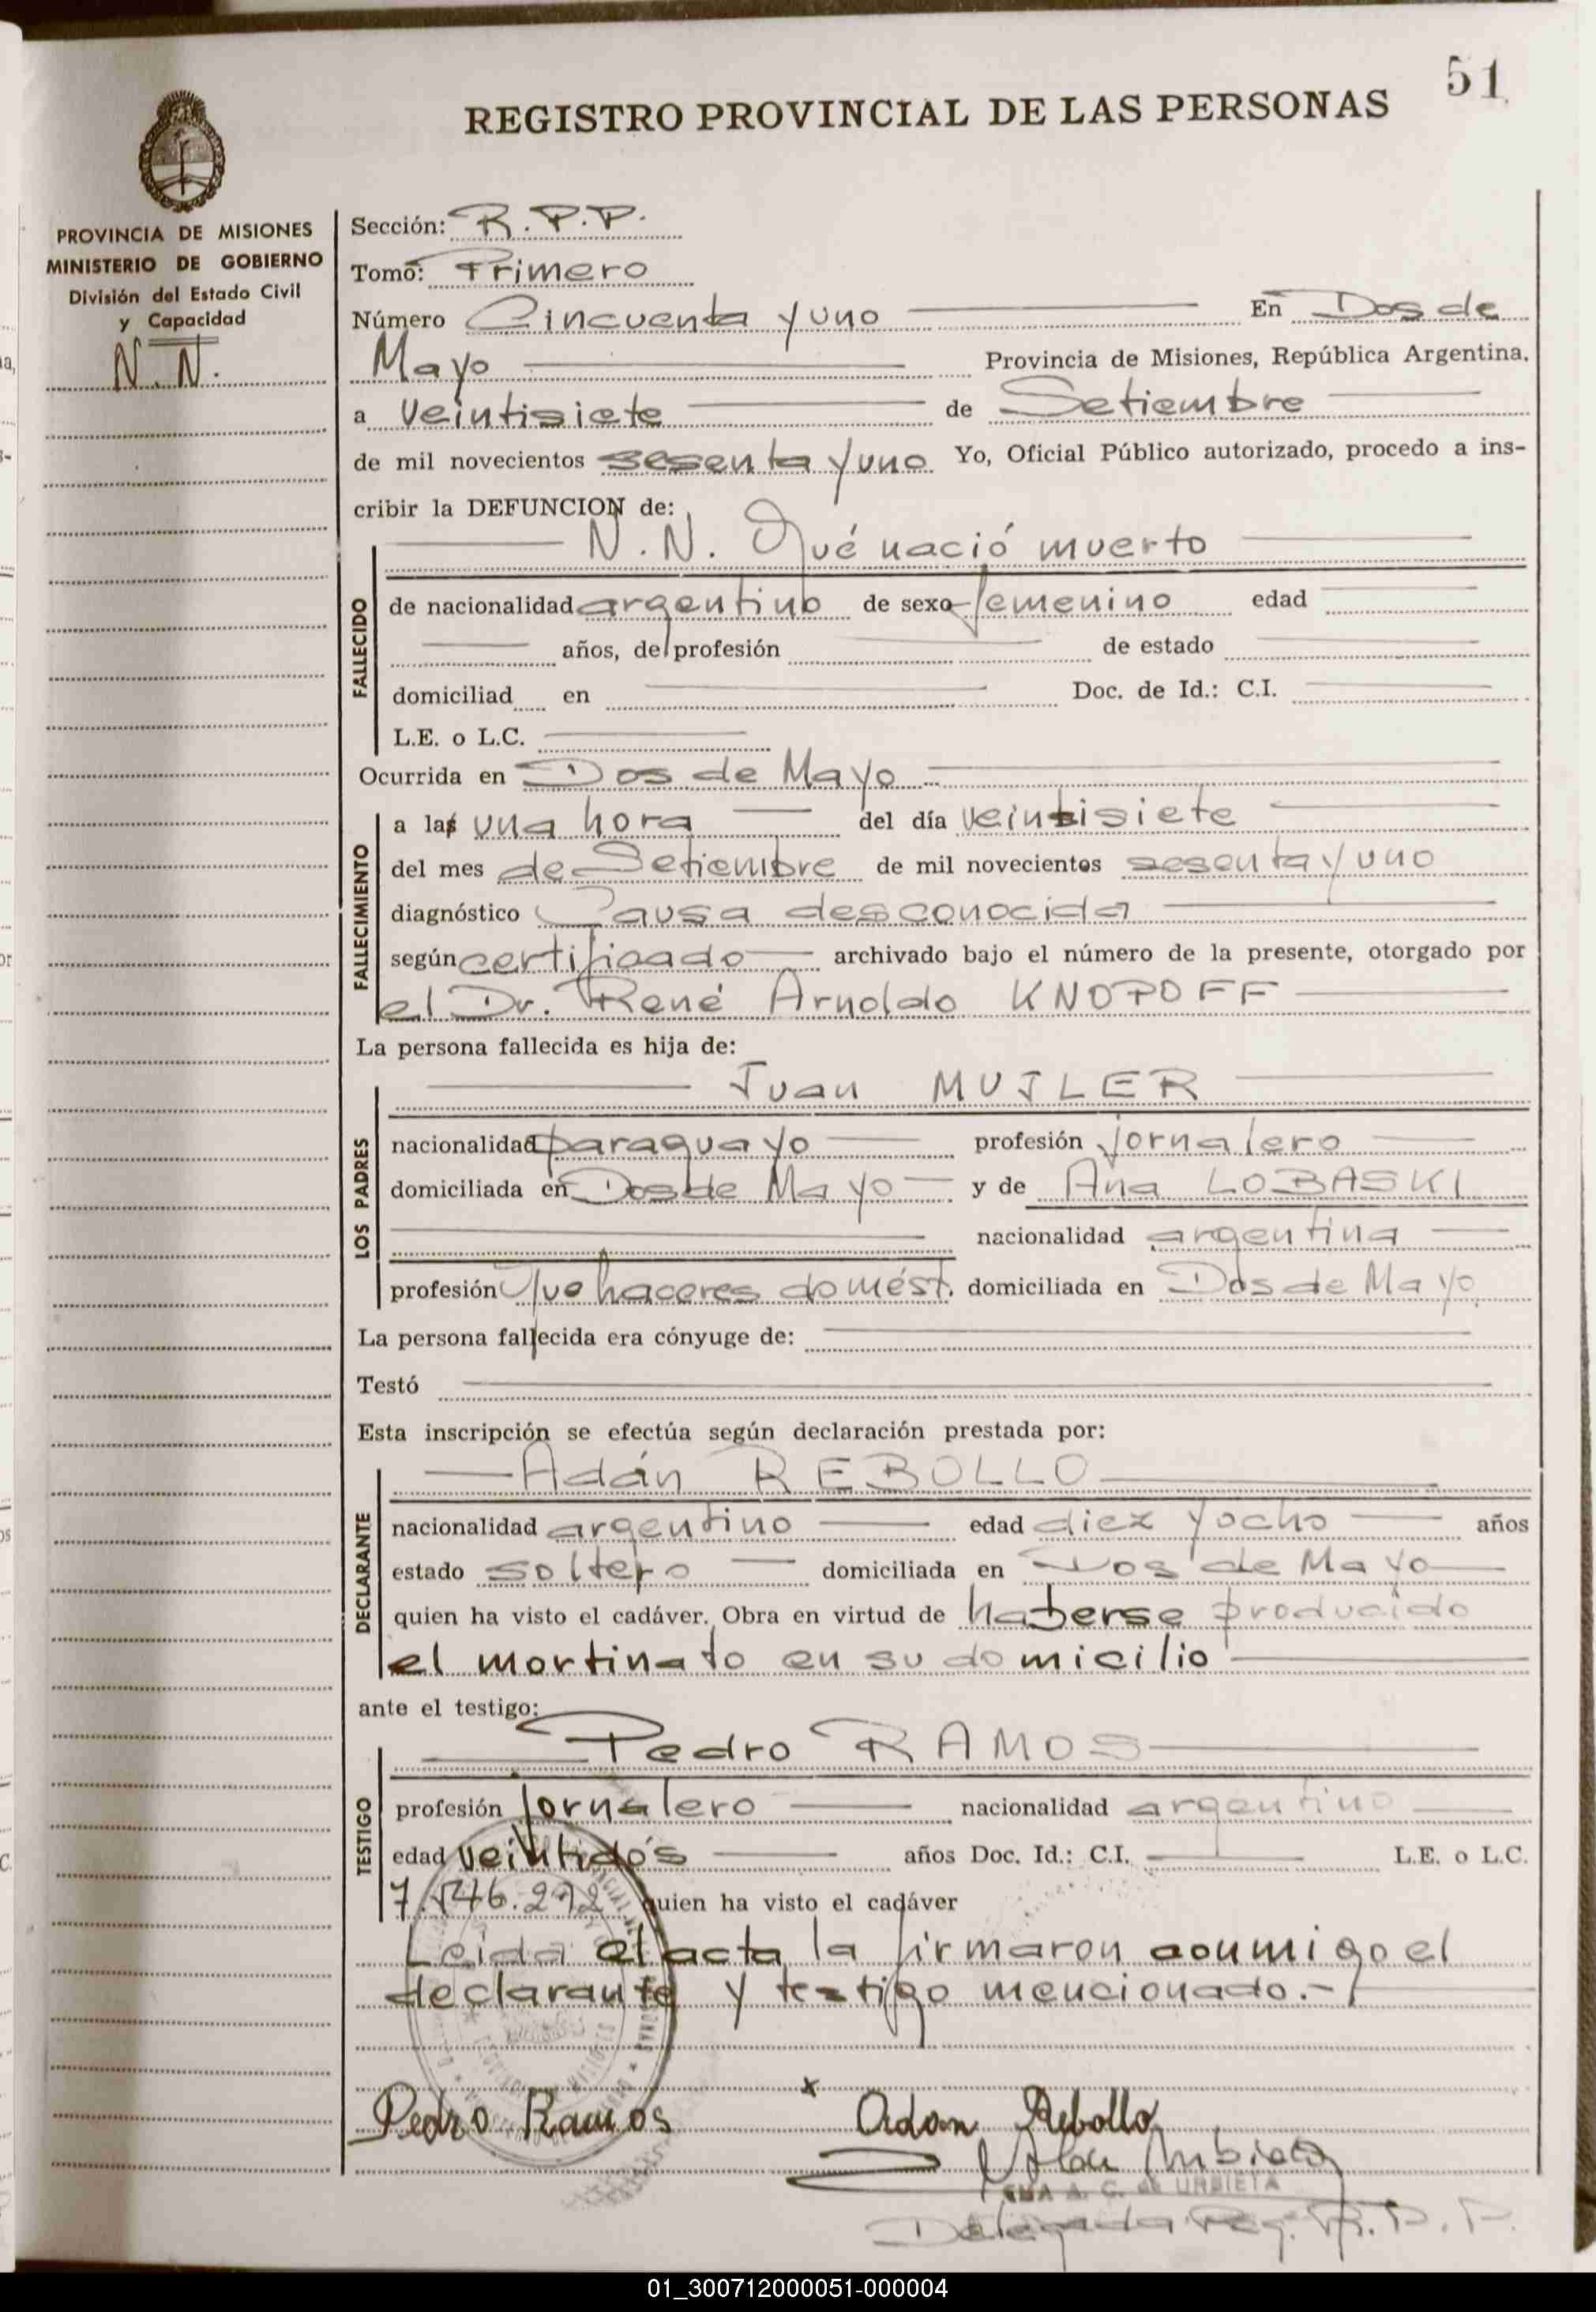 51
REGISTRO PROVINCIAL DE LAS PERSONAS
PROVINCIA DE MISIONES
MINISTERIO DE GOBIERNO
División del Estado Civil
y Capacidad
N.N.
Sección: R.P.P.
Tomo: Primero
Número Cincuenta y uno En Dos de
Mayo Provincia de Misiones, República Argentina,
a veintisiete de Setiembre
de mil novecientos sesenta y uno Yo, Oficial Público autorizado, procedo a ins-
cribir la DEFUNCION de:
N.N. Qué nació muerto
FALLECIDO
de nacionalidad argentino de sexo femenino edad
años, de profesión de estado
domiciliad en Doc. de Id.: C.I.
L.E. o L.C.
Ocurrida en Dos de Mayo
FALLECIMIENTO
a las una hora del día veintisiete
del mes de Setiembre de mil novecientos sesenta y uno
diagnóstico Causa desconocida
según certificado archivado bajo el número de la presente, otorgado por
el Dr. René Arnoldo KNOPOFF
La persona fallecida es hija de:
Juan MUJLER
LOS PADRES
nacionalidad paraguayo profesión jornalero
domiciliada en Dos de Mayo y de Ana LOBASKI
nacionalidad argentina
profesión Que haceres domést. domiciliada en Dos de Mayo
La persona fallecida era cónyuge de:
Testó
Esta inscripción se efectúa según declaración prestada por:
Adán REBOLLO
DECLARANTE
nacionalidad argentino edad diez y ocho años
estado soltero domiciliada en Dos de Mayo
quien ha visto el cadáver. Obra en virtud de haberse producido
el mortinato en su domicilio
ante el testigo:
Pedro RAMOS
TESTIGO
profesión jornalero nacionalidad argentino
edad veintidós años Doc. Id.: C.I. L.E. o L.C.
quien ha visto el cadáver
Leida el acta, la firmaron conmigo el
declarante y testigo mencionado.-
Pedro Ramos x Adan Rebollo
A. C. de URBIETA
Delegada Reg. R.P.P.
01_300712000051-000004